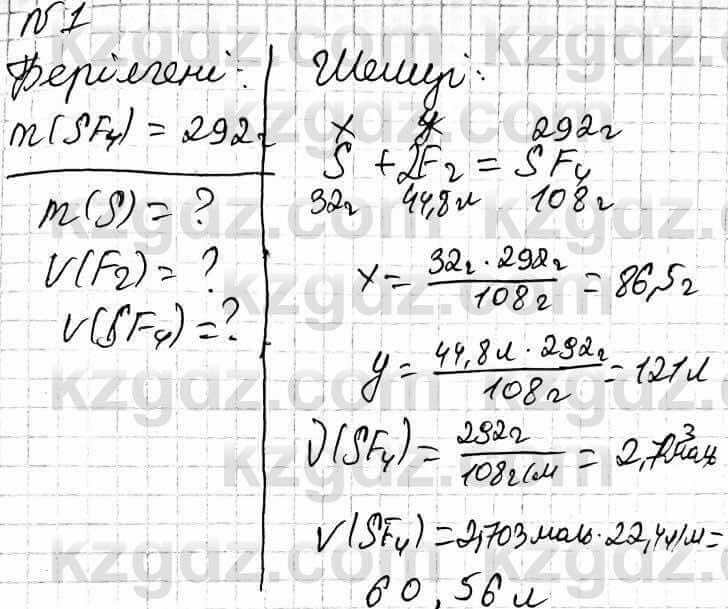 №1
Берілгені:
m(SF₄) = 292г
m(S) = ?
V(F₂) = ?
V(SF₄) = ?
Шешуі:
x y 292г
S + 2F₂ = SF₄
32г 44,8л 108г
x = 32г · 292г / 108г = 86,5г
y = 44,8л · 292г / 108г = 121л
ν(SF₄) = 292г / 108г/м = 2,703 моль
V(SF₄) = 2,703 моль · 22,4л/м =
60,56л
kzgdz.com